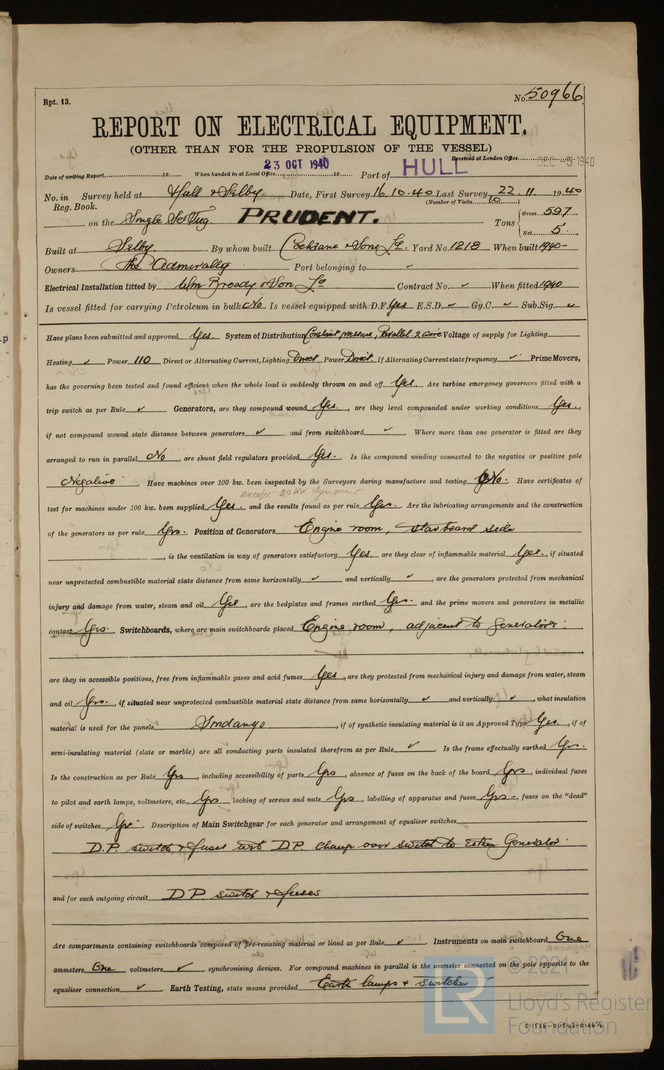 Rpt. 13.
No. 50966
REPORT ON ELECTRICAL EQUIPMENT.
(OTHER THAN FOR THE PROPULSION OF THE VESSEL)
Received at London Office DEC -5 1940
Date of writing Report 19 When handed in at Local Office 23 OCT 1940 19 Port of HULL
No. in Survey held at Hull & Selby. Date, First Survey 16.10.40 Last Survey 22. 11. 1940
Reg. Book. (Number of Visits 10)
on the Single Sc Tug PRUDENT. Tons { Gross 597 Net 5.
Built at Selby. By whom built Cochrane & Sons Ld. Yard No. 1218 When built 1940-
Owners The Admiralty Port belonging to -
Electrical Installation fitted by Wm Broady & Son Ld Contract No. ✓ When fitted 1940
Is vessel fitted for carrying Petroleum in bulk No Is vessel equipped with D.F. Yes E.S.D. ✓ Gy.C. ✓ Sub.Sig. ✓
Have plans been submitted and approved Yes. System of Distribution Constant pressure, Parallel 2 wire Voltage of supply for Lighting
Heating ✓ Power 110 Direct or Alternating Current, Lighting Direct Power Direct. If Alternating Current state frequency ✓ Prime Movers,
has the governing been tested and found efficient when the whole load is suddenly thrown on and off Yes. Are turbine emergency governors fitted with a
trip switch as per Rule ✓ Generators, are they compound wound Yes, are they level compounded under working conditions Yes,
if not compound wound state distance between generators ✓ and from switchboard ✓ Where more than one generator is fitted are they
arranged to run in parallel No, are shunt field regulators provided Yes. Is the compound winding connected to the negative or positive pole
Negative Have machines over 100 kw. been inspected by the Surveyors during manufacture and testing No. Have certificates of
except 20 KW dynamo
test for machines under 100 kw. been supplied Yes. and the results found as per rule Yes. Are the lubricating arrangements and the construction
of the generators as per rule Yes. Position of Generators Engine room, starboard side
, is the ventilation in way of generators satisfactory Yes are they clear of inflammable material Yes., if situated
near unprotected combustible material state distance from same horizontally ✓ and vertically ✓, are the generators protected from mechanical
injury and damage from water, steam and oil Yes, are the bedplates and frames earthed Yes. and the prime movers and generators in metallic
contact Yes. Switchboards, where are main switchboards placed Engine room, adjacent to Generators.
are they in accessible positions, free from inflammable gases and acid fumes Yes, are they protected from mechanical injury and damage from water, steam
and oil Yes., if situated near unprotected combustible material state distance from same horizontally ✓ and vertically ✓, what insulation
material is used for the panels Sindanyo, if of synthetic insulating material is it an Approved Type Yes, if of
semi-insulating material (slate or marble) are all conducting parts insulated therefrom as per Rule ✓ Is the frame effectually earthed Yes.
Is the construction as per Rule Yes, including accessibility of parts Yes, absence of fuses on the back of the board Yes, individual fuses
to pilot and earth lamps, voltmeters, etc., Yes locking of screws and nuts Yes, labelling of apparatus and fuses Yes, fuses on the "dead"
side of switches Yes. Description of Main Switchgear for each generator and arrangement of equaliser switches
D.P. switch & fuses with D.P. change over switch to either Generator
and for each outgoing circuit DP switch & fuses
Are compartments containing switchboards composed of fire-resisting material or lined as per Rule ✓ Instruments on main switchboard One
ammeters One voltmeters ✓ synchronising devices. For compound machines in parallel is the ammeter connected on the pole opposite to the
equaliser connection ✓ Earth Testing, state means provided Earth lamps & switches
© 2021
LR
Lloyd's Register
Foundation